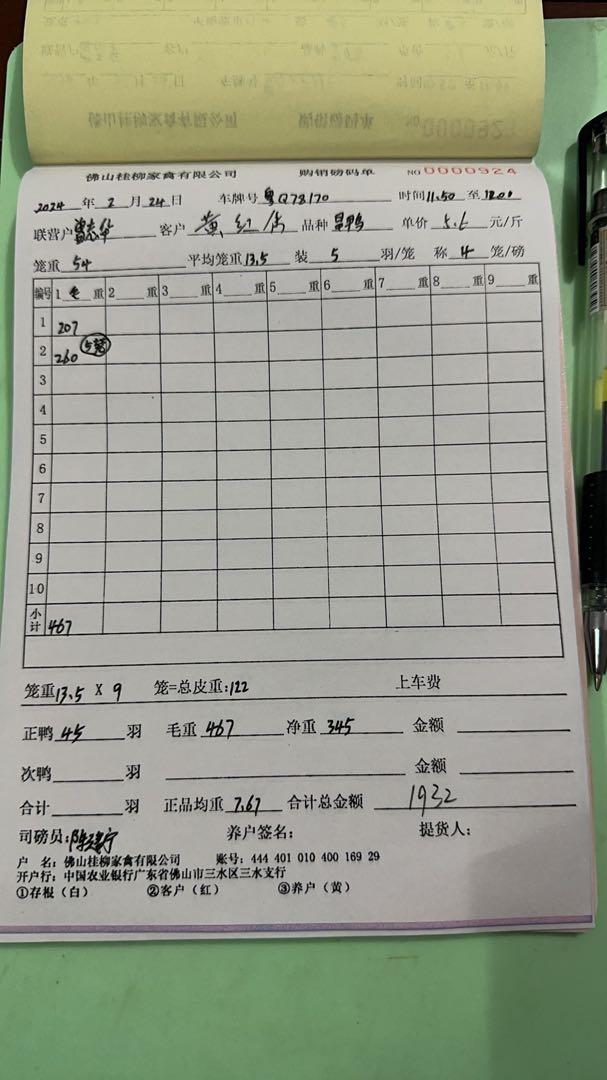 佛山桂柳家禽有限公司 购销磅码单 NO 0000924
2024 年 2 月 24 日 车牌号 粤Q78170 时间 11.50 至 1201
联营户 客户 黄红 品种 单价 5.6 元/斤
笼重 54 平均笼重 13.5 装 5 羽/笼 称 4 笼/磅
编号 1 毛 重 2 重 3 重 4 重 5 重 6 重 7 重 8 重 9 重
1 207
2 260 5笼
3
4
5
6
7
8
9
10
小计 467
笼重 13.5 X 9 笼=总皮重: 122 上车费
正鸭 45 羽 毛重 467 净重 345 金额
次鸭 羽 金额
合计 羽 正品均重 7.67 合计总金额 1932
司磅员: 养户签名: 提货人:
户 名: 佛山桂柳家禽有限公司 账号: 444 401 010 400 169 29
开户行: 中国农业银行广东省佛山市三水区三水支行
①存根（白） ②客户（红） ③养户（黄）